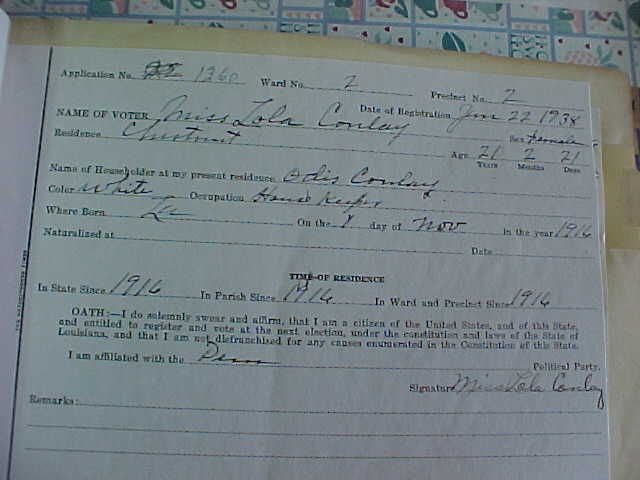 Application No. 1360 Ward No. 2 Precinct No. 2
Date of Registration Jan 22 1938
NAME OF VOTER Miss Lola Conlay
Residence Chestnut Sex Female
Age 21 2 21
Years Months Days
Name of Householder at my present residence Odis Conlay
Color White Occupation House Keeper
Where Born La On the 1 day of Nov in the year 1916
Naturalized at Date
TIME OF RESIDENCE
In State Since 1916 In Parish Since 1916 In Ward and Precinct Since 1916
OATH:—I do solemnly swear and affirm, that I am a citizen of the United States, and of this State,
and entitled to register and vote at the next election, under the constitution and laws of the State of
Louisiana, and that I am not disfranchised for any causes enumerated in the Constitution of this State.
I am affiliated with the Dem Political Party.
Signature Miss Lola Conlay
Remarks: